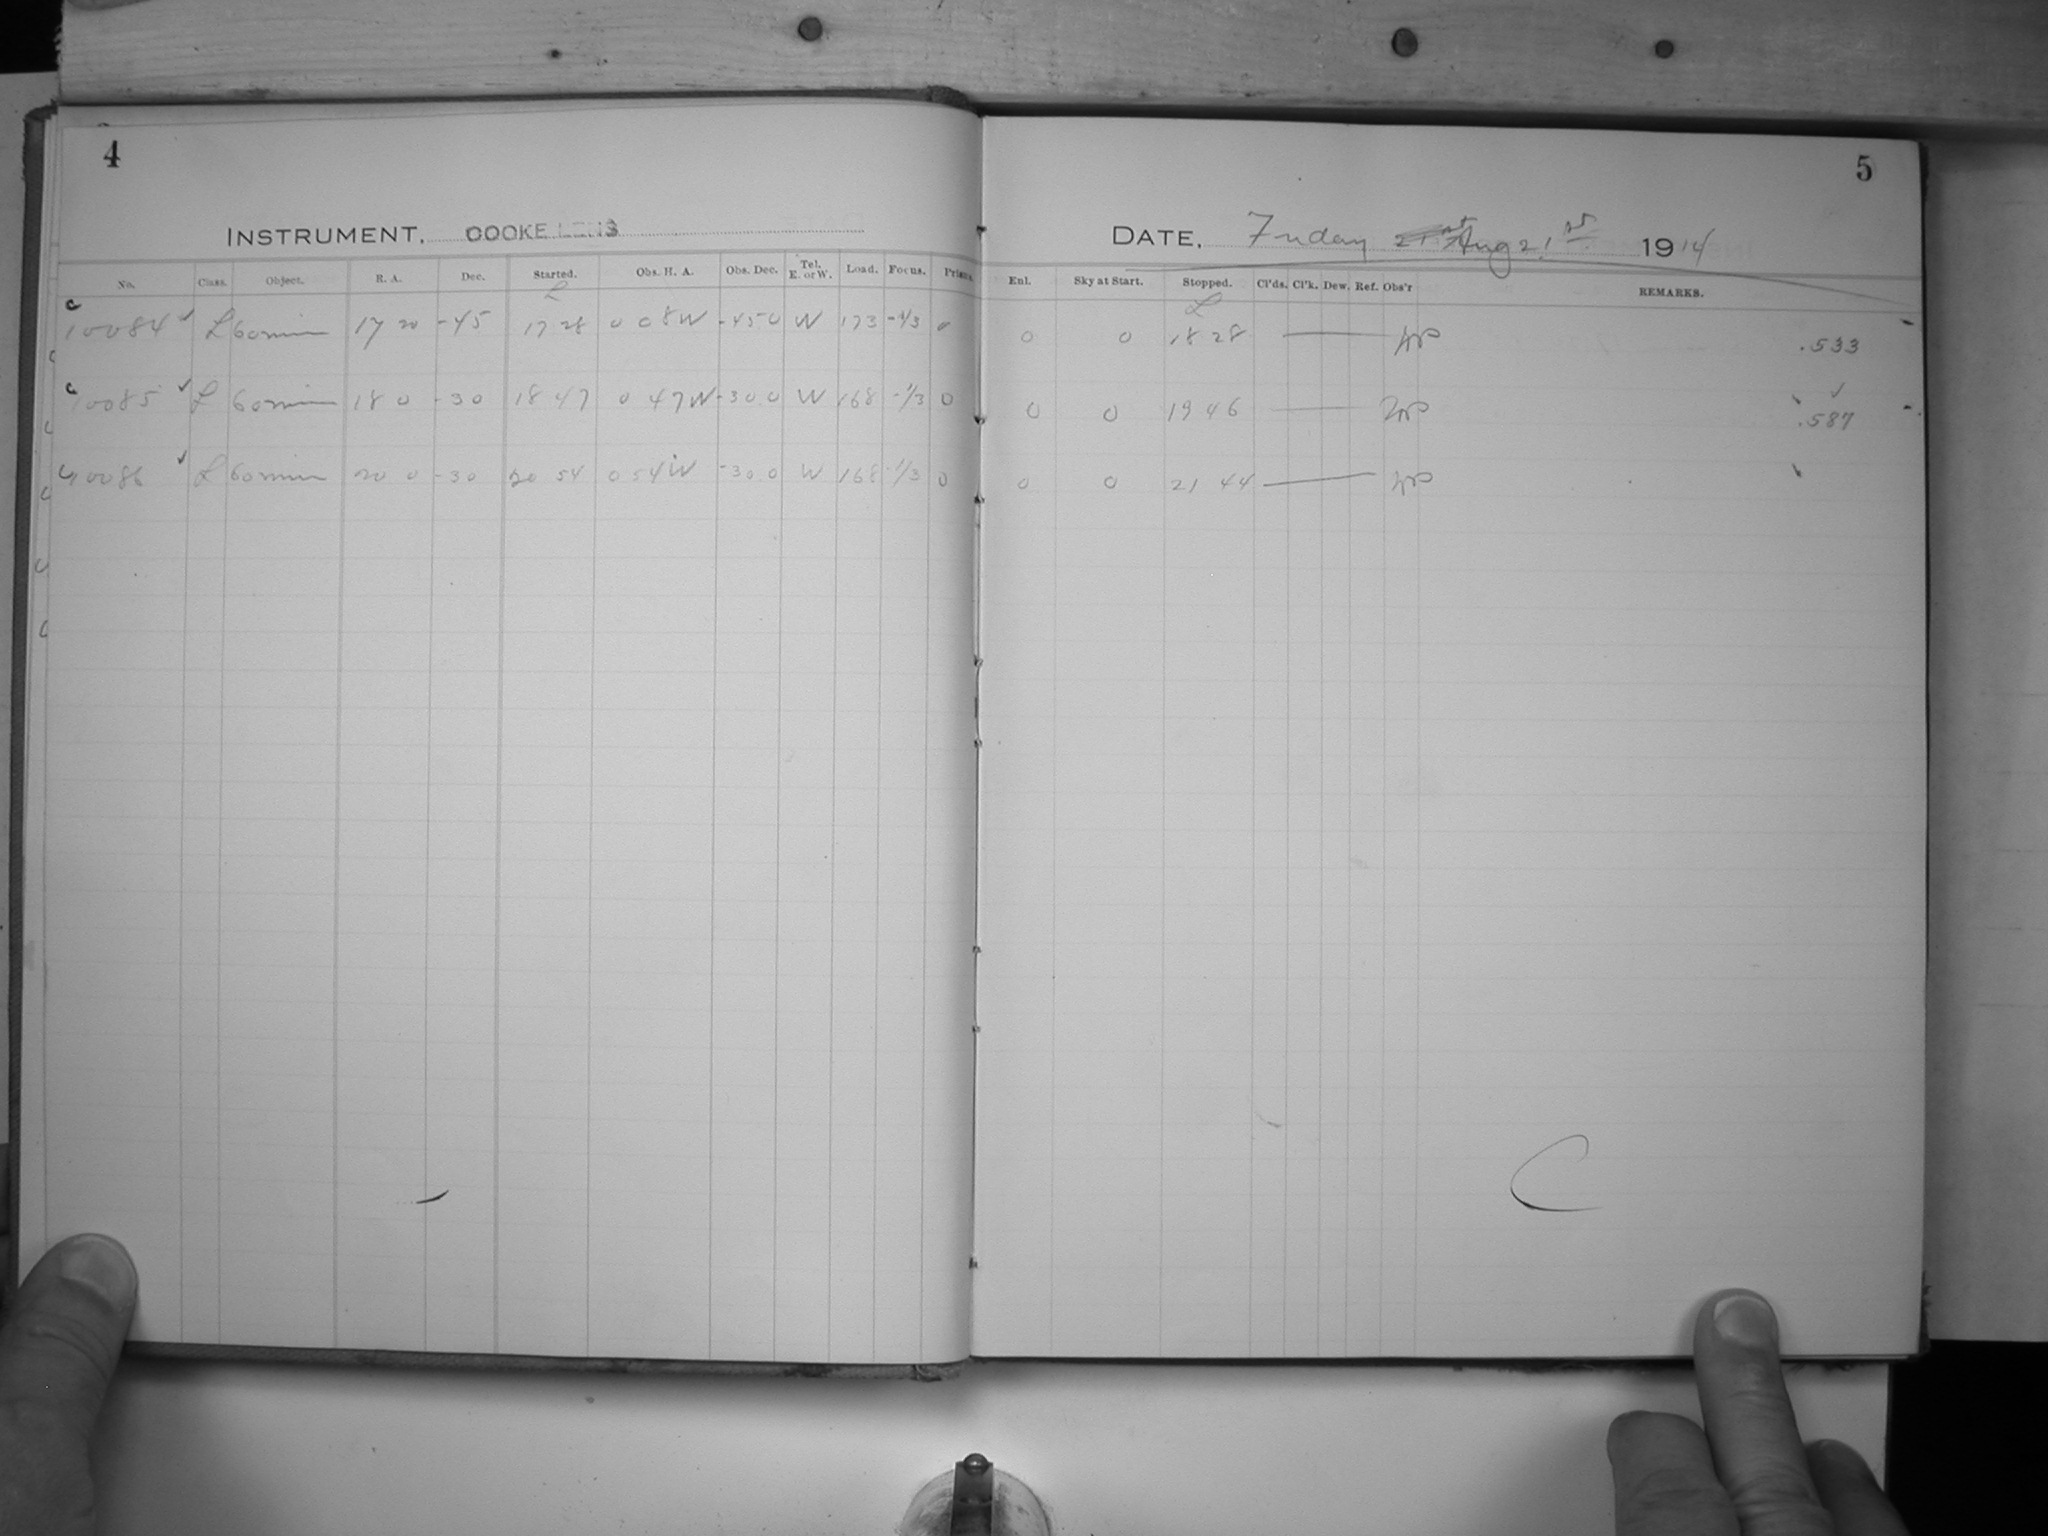 4
INSTRUMENT, COOKE LENS
No. Class. Object. R. A. Dec. Started. Obs. H. A. Obs. Dec. Tel. E. or W. Load. Focus. Prism.
L
10084 L 60 min 17 20 -45 17 28 0 08 W -45 0 W 173 -1/3 0
10085 L 60 min 18 0 -30 18 47 0 47 W -30 0 W 168 -1/3 0
10086 L 60 min 20 0 -30 20 54 0 54 W -30 0 W 168 -1/3 0
5
DATE, Friday Aug 21st 1914
Enl. Sky at Start. Stopped. Cl'ds. Cl'k. Dew. Ref. Obs'r REMARKS.
L
0 0 18 28 .533
0 0 19 46 .587
0 0 21 44
C